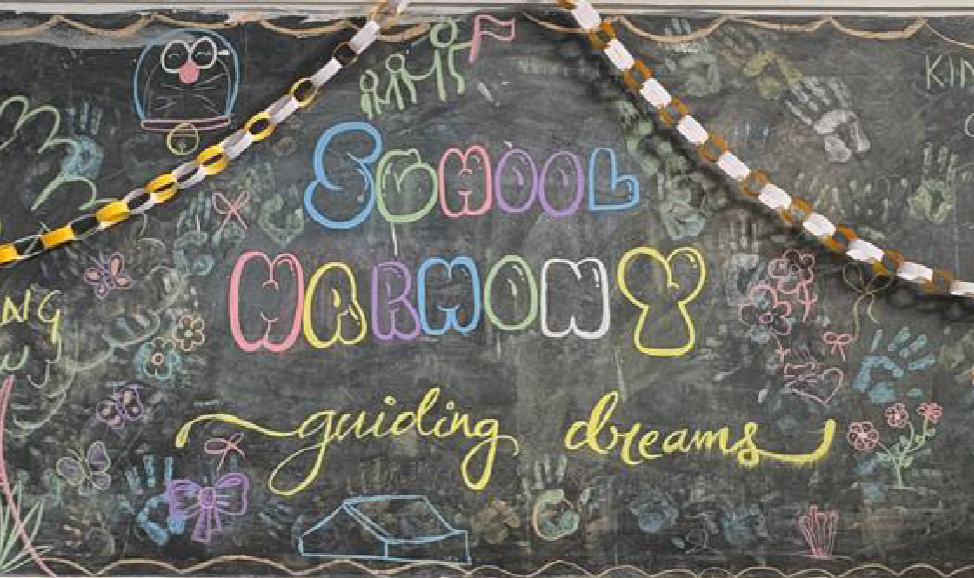 KIN
SCHOOL
HARMONY
NG
guiding dreams